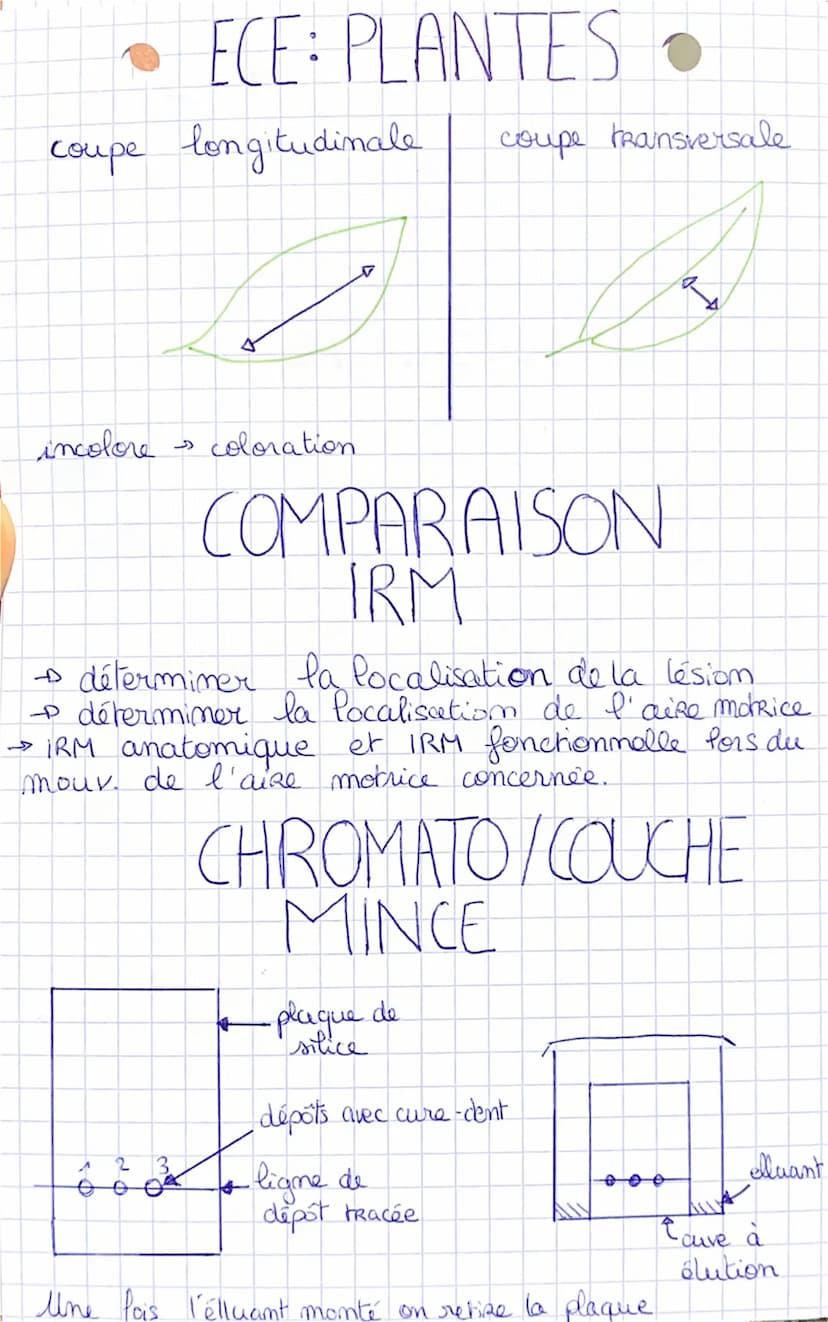 ECE: PLANTES
coupe longitudinale
coupe transversale
incolore → coloration
COMPARAISON
IRM
→ déterminer la localisation de la lésion
→ déterminer la localisation de l'aire motrice
→ IRM anatomique et IRM fonctionnelle lors du
mouv. de l'aire motrice concernée.
CHROMATO/COUCHE
MINCE
plaque de
silice
dépôts avec cure-dent
1 2 3
ligne de
dépôt tracée
elluant
cuve à
élution
Une fois l'élluant monté on retire la plaque